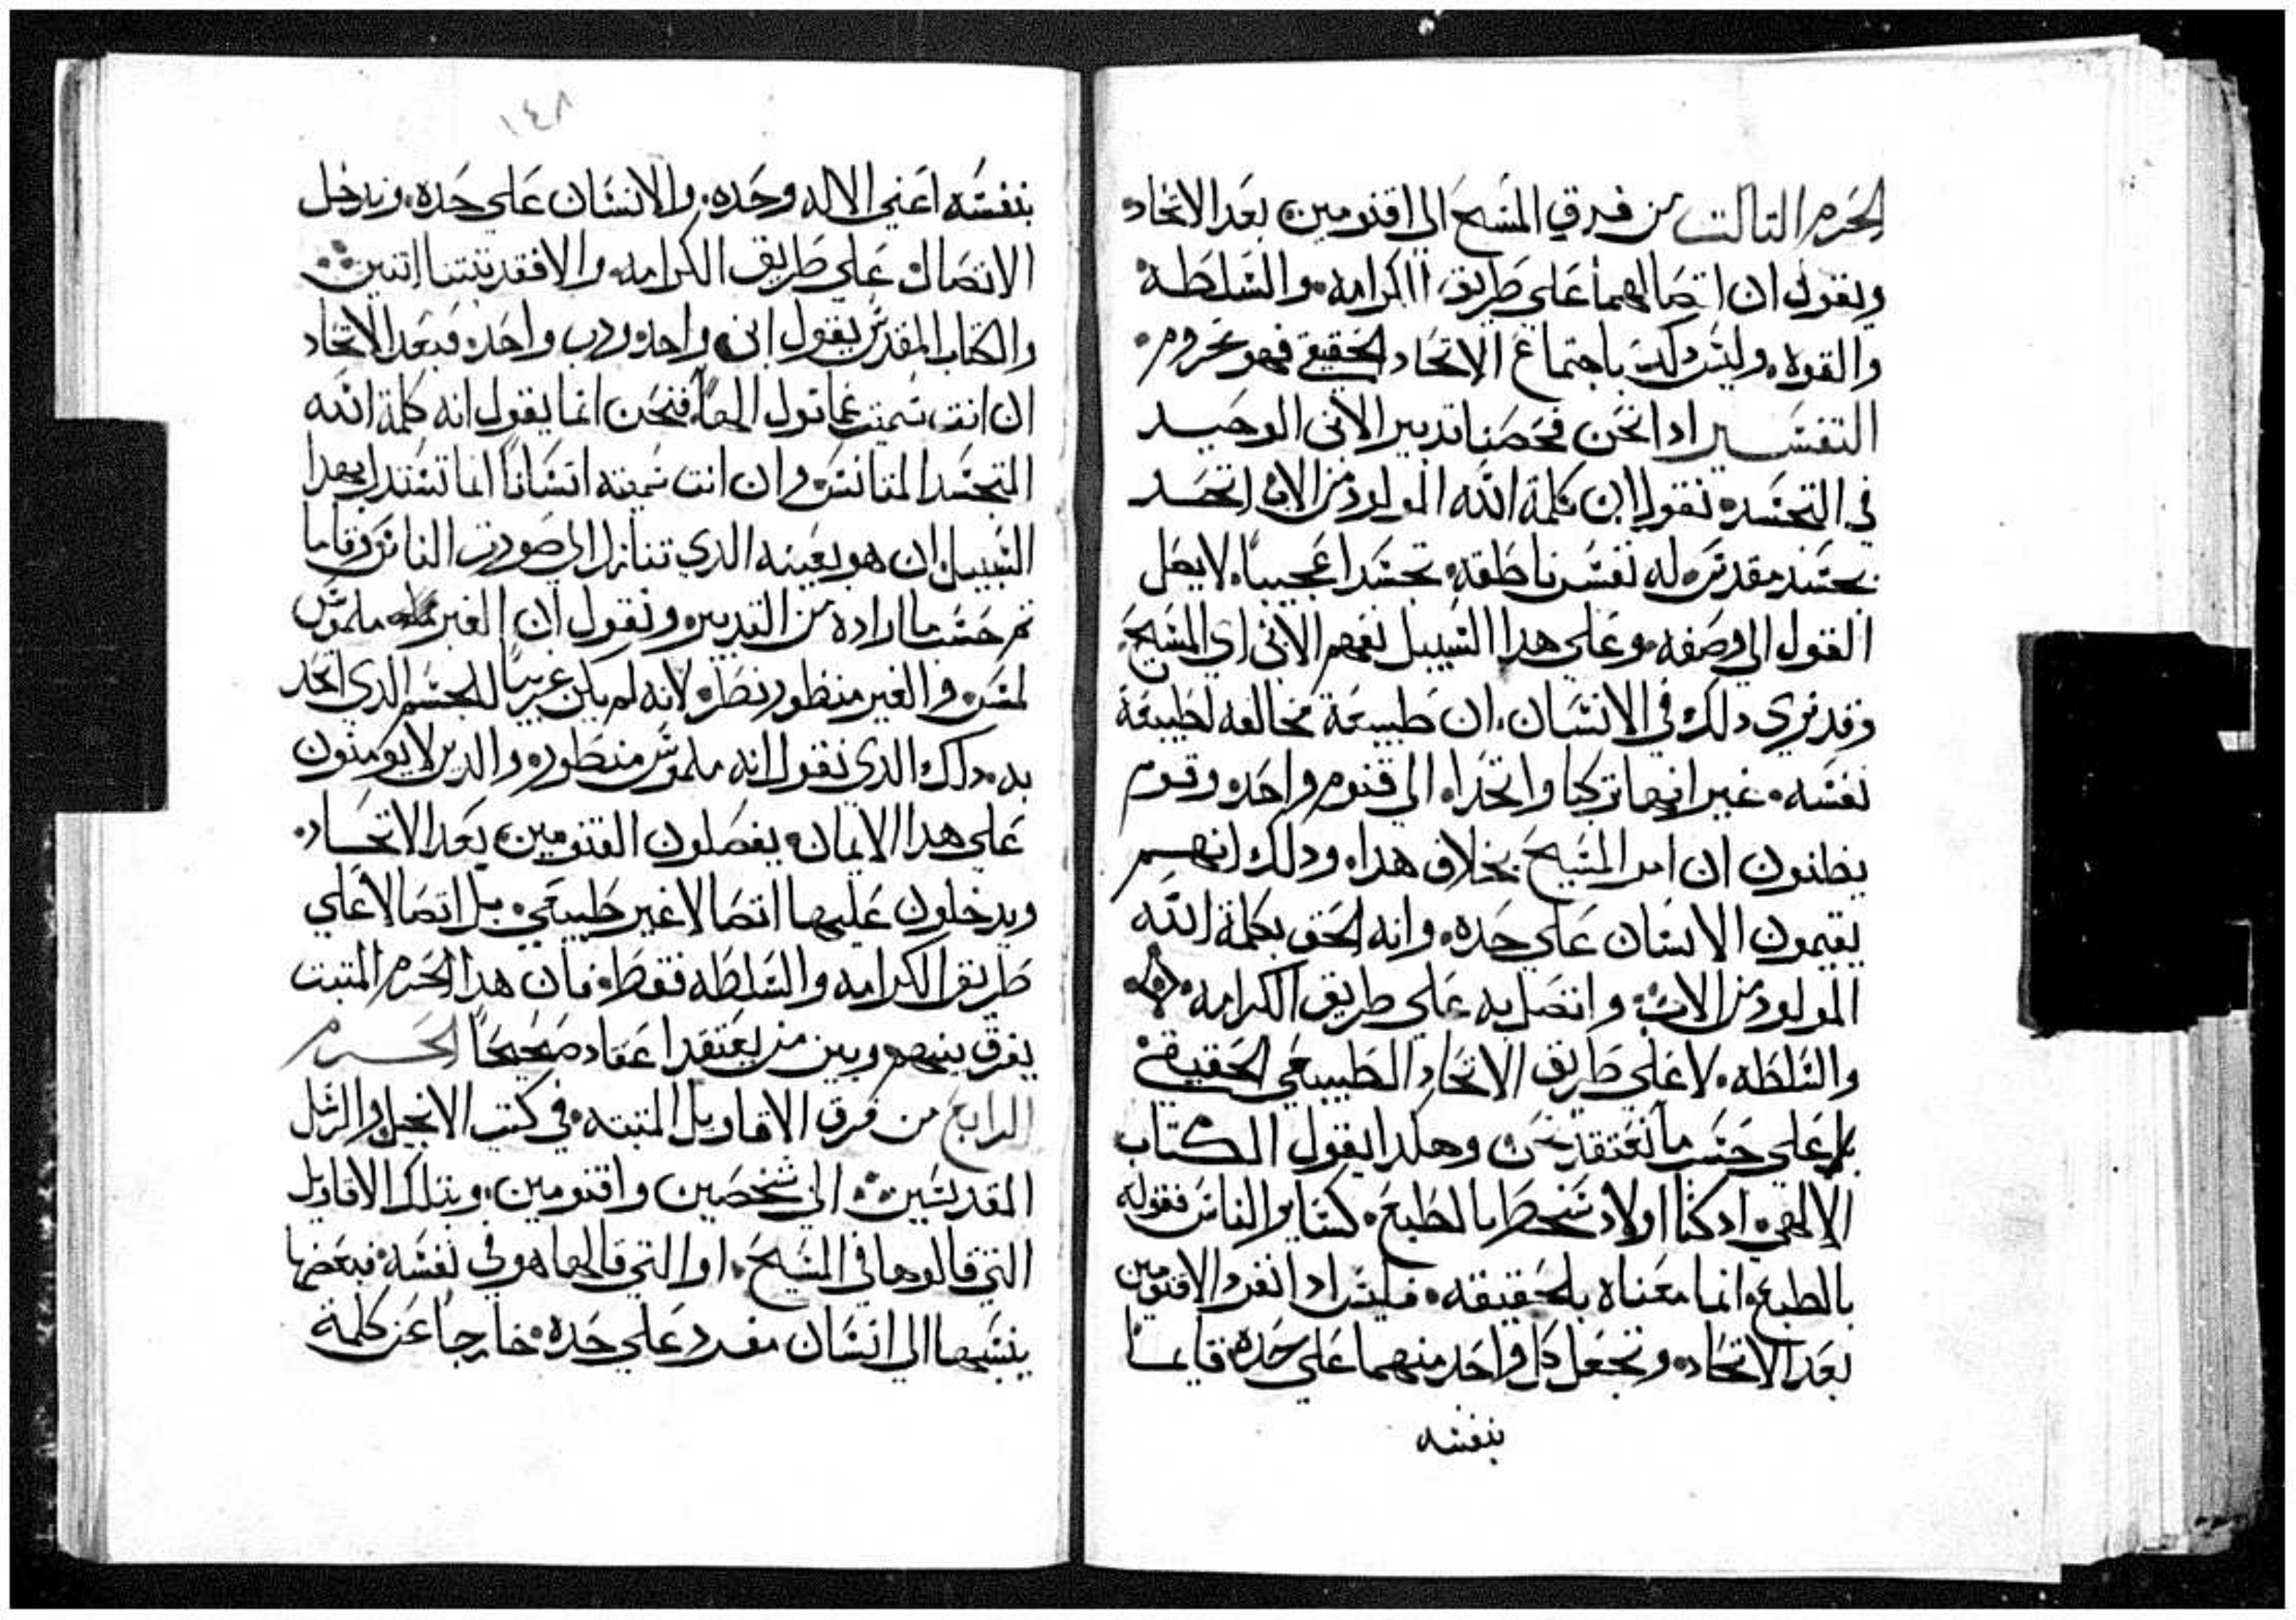 الحرم التالت من فرق المسيح الي اقنومين بعد الاتحاد
ويقول ان اتصالهما علي طريق الكرامه والسلطة
والقوه وليس دلك باجتماع الاتحاد الحقيقي فهو محروم
التفسير ادا نحن فحصنا تدبير الابن الوحيد
في التجسد نقول ان كلمة الله المولود من الاب اتحد
بجسد مقدس له نفس ناطقه تجسدا عجيبا لا يصل
القول الي وصفه وعلي هدا السبيل نفهم الابن اي المسيح
وقد نري دلك في الانسان ان طبيعة مخالفه لطبيعة
نفسه غير انهما تركبا واتحدا الي قنوم واحد وقوم
يظنون ان امر المسيح بخلاف هدا ودلك انهم
يقيمون الانسان علي حده وانه لحق بكلمة الله
المولود من الاب واتصل به علي طريق الكرامه
والسلطه لا علي طريق الاتحاد الطبيعي الحقيقي
بل علي حسب ما نعتقد نحن وهكدا يقول الكتاب
الالهي اد كنا اولاد سخط بالطبع كساير الناس فقوله
بالطبع انما معناه بالحقيقه فليس ادا انفرد الاقنومين
بعد الاتحاد ونجعل كل واحد منهما علي حده قايما
بنفسه
١٤٨
بنفسه اعني الاله وحده والانسان علي حده وندخل
الاتصال علي طريق الكرامه والا فقد بيتنا اتنين
والكتاب المقدس يقول ابن واحد ورب واحد فبعد الاتحاد
ان انت سميت عمانويل الها فنحن انما يقول انه كلمة الله
المتجسد المتانس وان انت سميته انسانا انما تستدل بهدا
السبيل ان هو بعينه الدي تنازل الي صورت الناس وقاما
تم حسب ما اراده من التدبير ونقول ان الغير ملموس
لمس والغير منظور نظر لانه لم يكن غريبا للجسم الدي اتحد
به دلك الدي نقول انه ملموس منظور والدين لا يومنون
علي هدا الايمان يفصلون القنومين بعد الاتحاد
ويدخلون عليهما اتصالا غير طبيعي بل اتصالا علي
طريق الكرامه والسلطه فقط فان هدا الحرم المتبت
يفرق بينهم وبين من يعتقد اعتقاد صحيحا الحرم
الرابع من فرق الاقاويل المتبته في كتب الانجيل والرسل
المقدسين الي شخصين واقنومين وبتلك الاقاويل
التي قالوها في المسيح او التي قالها هو في نفسه فبعضها
ينسبها الي انسان مفرد علي حده خارجا عن كلمة